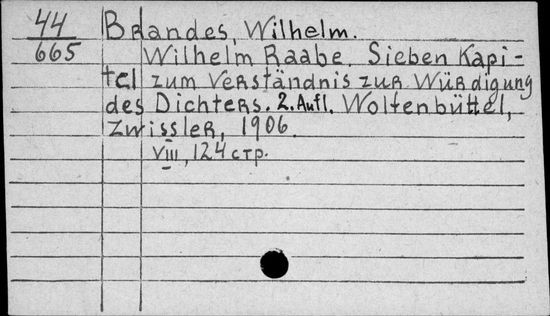 44
665
Brandes, Wilhelm.
Wilhelm Raabe. Sieben Kapi-
tel zum Verständnis zur Würdigung
des Dichters. 2. Aufl. Woltenbüttel,
Zwissler, 1906.
VIII, 124 стр.